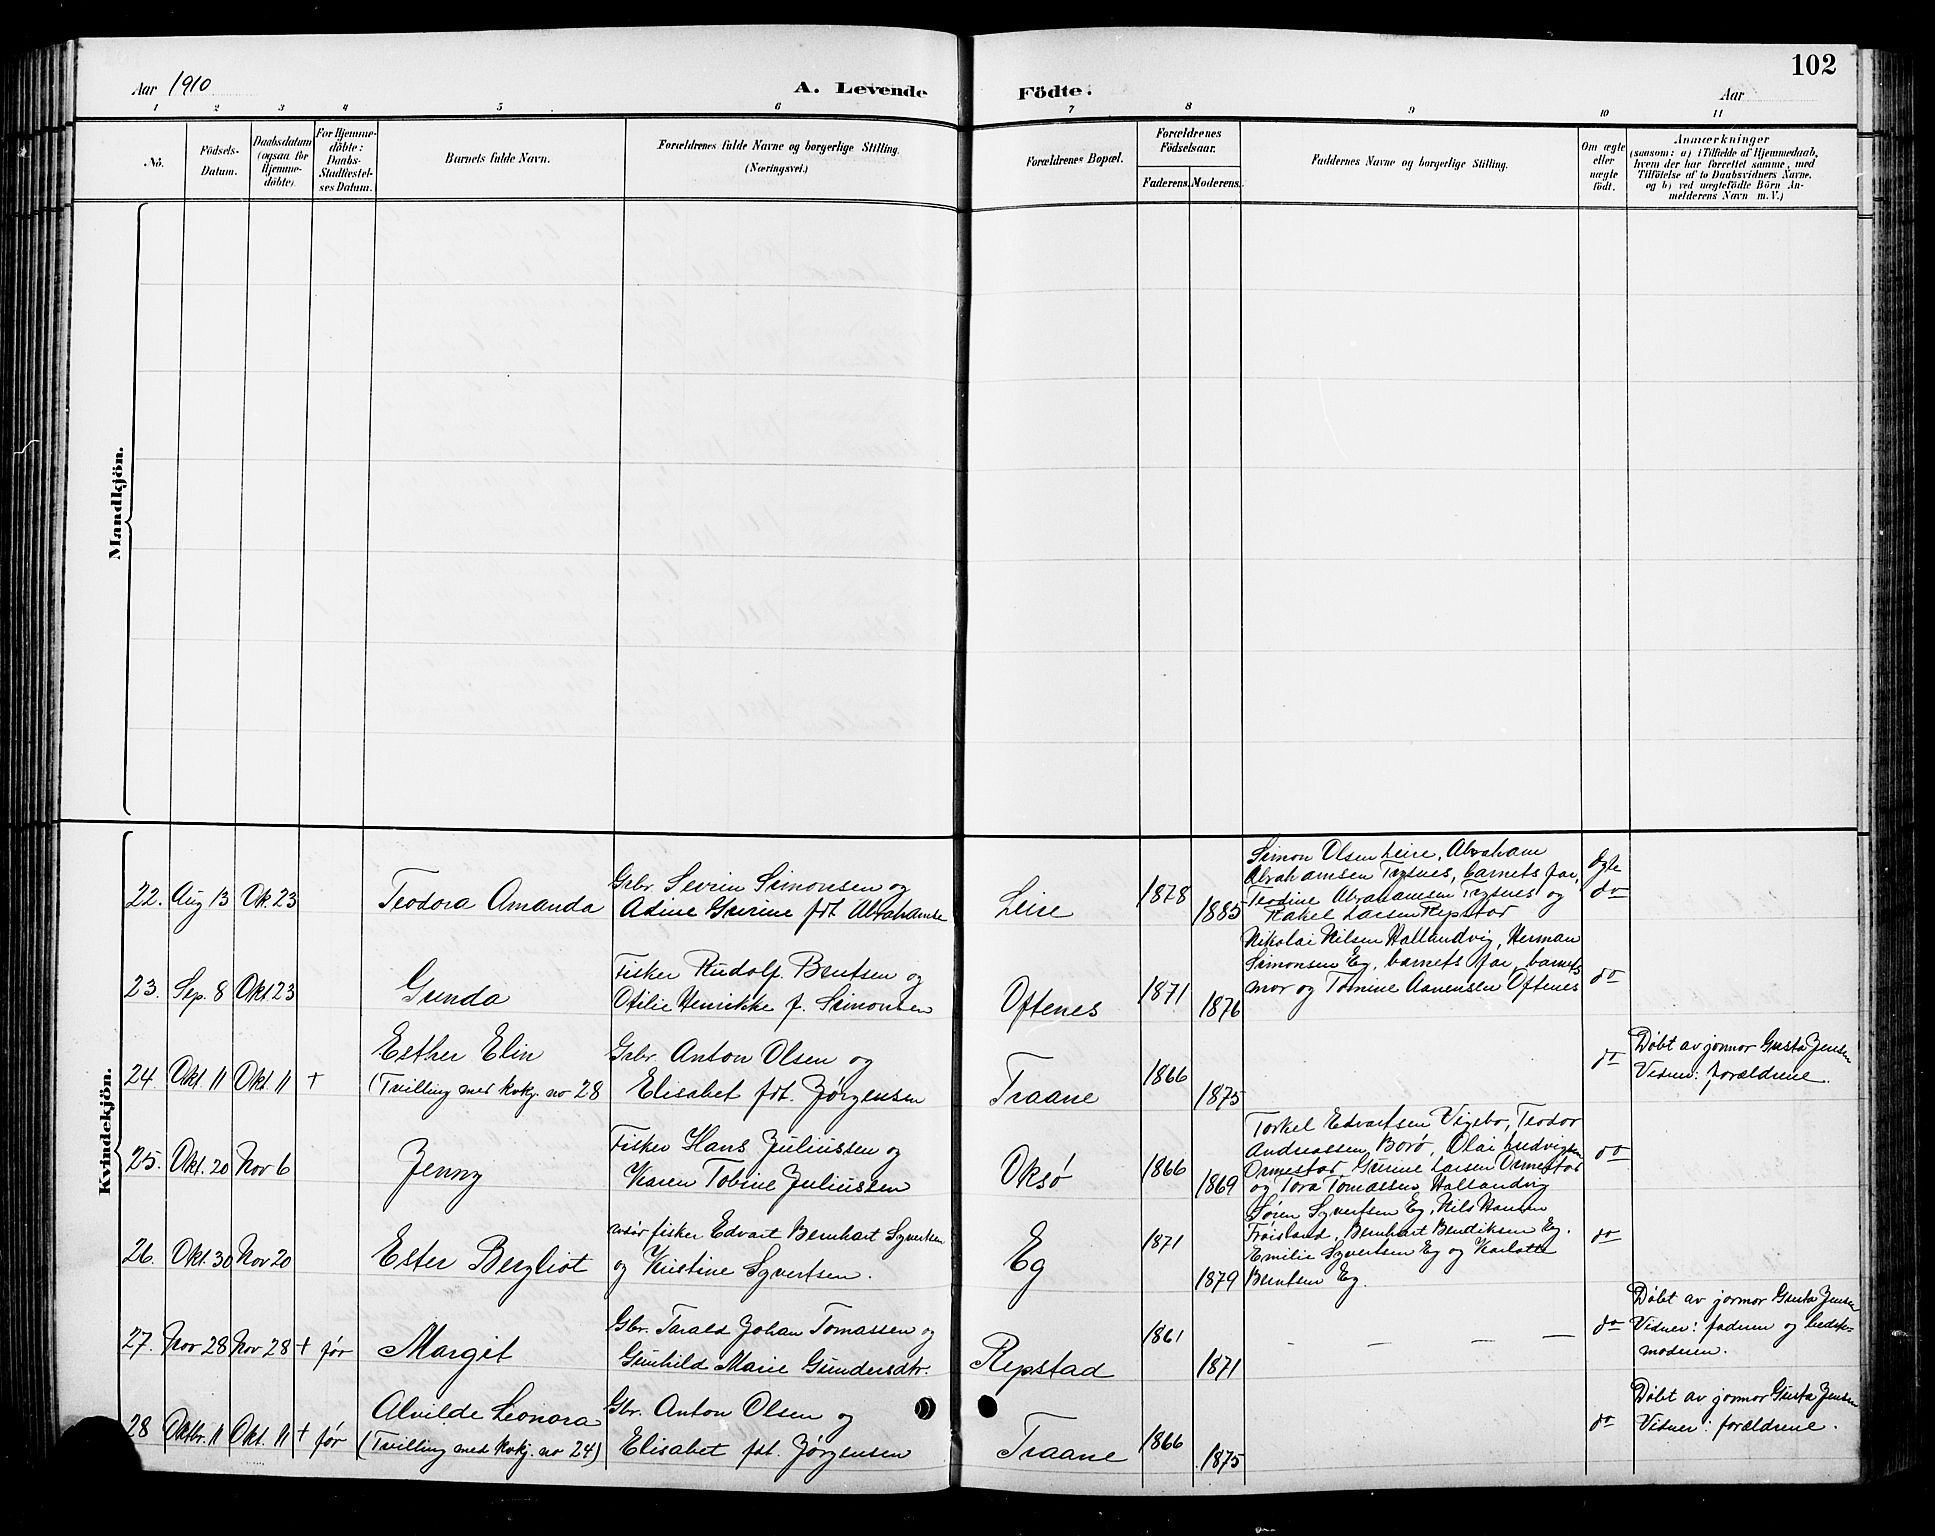 102
Aar 1910
A. Levende
Födte.
Aar
1 2 3 4 5 6 7 8 9 10 11
No.
Födsels-
Datum.
Daabsdatum
(ogsaa for
Hjemme-
döbte).
For Hjemme-
döbte:
Daabs-
Stadfæstel-
ses Datum.
Barnets fulde Navn.
Forældrenes fulde Navne og borgerlige Stilling.
(Næringsvei.)
Forældrenes Bopæl.
Forældrenes
Födselsaar.
Faderens. Moderens.
Faddernes Navne og borgerlige Stilling.
Om ægte
eller
uægte
födt.
Anmærkninger
(saasom: a) i Tilfælde af Hjemmedaab,
hvem der har forrettet samme, med
Tilföielse af to Daabsvidners Navne,
og b) ved uægtefödte Börn An-
melderens Navn m. V.)
Mandkjön.
Kvindekjön.
22. Aug 13 Ok. 23
Teodora Amanda
Grbr. Sevrin Simonsen og
Adine Gurine fdt. Abrahamse
Leire
1878
1885
Simon Olsen Leire, Abraham
Abrahamsen Tysnes, barnets far,
Teodine Abrahamsen Tysnes og
Rakel Larsen Repstad
Ægte
do
23. Sep. 8 Okt. 23
Gunda
Fisker Rudolf Bentsen og
Otilie Henrikke f. Simonsen
Oftenes
1871
1876
Nikolai Nilsen Hallandvig, Herman
Simonsen Eg, barnets far, barnets
mor og Tomine Aanensen Oftenes
do
24. Okt. 11 Okt. 11 +
Esther Elin
(Tvilling med kvkj. no 28
Grbr. Anton Olsen og
Elisabet fdt. Jørgensen
Traane
1866
1875
do
Døbt av jormor Gusta Jensen
Vidner: forældrene.
25. Okt. 20 Nov 6
Jenny
Fisker Hans Juliussen og
Karen Tobine Juliussen
Oksø
1866
1869
Torkel Edvartsen Vigebo, Teodor
Andreassen Borø, Olai Ludvigsen
Ormestad, Gurine Larsen Ormestad
og Tora Tomassen Hallandvig
do
26. Okt. 30 Nov 20
Ester Bergliot
fisker Edvart Bernhart Syvertsen
og Kristine Syvertsen.
Eg
1871
1879
Søren Syvertsen Eg, Nils Hansen
Frøisland, Bernhart Bendiksen Eg.
Emilie Syvertsen Eg og Karlotte
Berntsen Eg.
do
27. Nov 28 Nov 28 + før
Margit
Gbr. Tarald Johan Tomassen og
Gunhild Marie Gundersdtr.
Repstad
1861
1871
— — — —
do
Døbt av jormor Gusta Jensen
Vidner: faderen og bedste-
moderen.
28 Oktbr. 11 Okt. 11 + før
Alvilde Leonora
(Tvilling med kvkj. no 24)
Gbr. Anton Olsen og
Elisabet fdt. Jørgensen
Traane
1866
1875
do
Døbt av jormor Gusta Jensen
Vidner: forældrene.